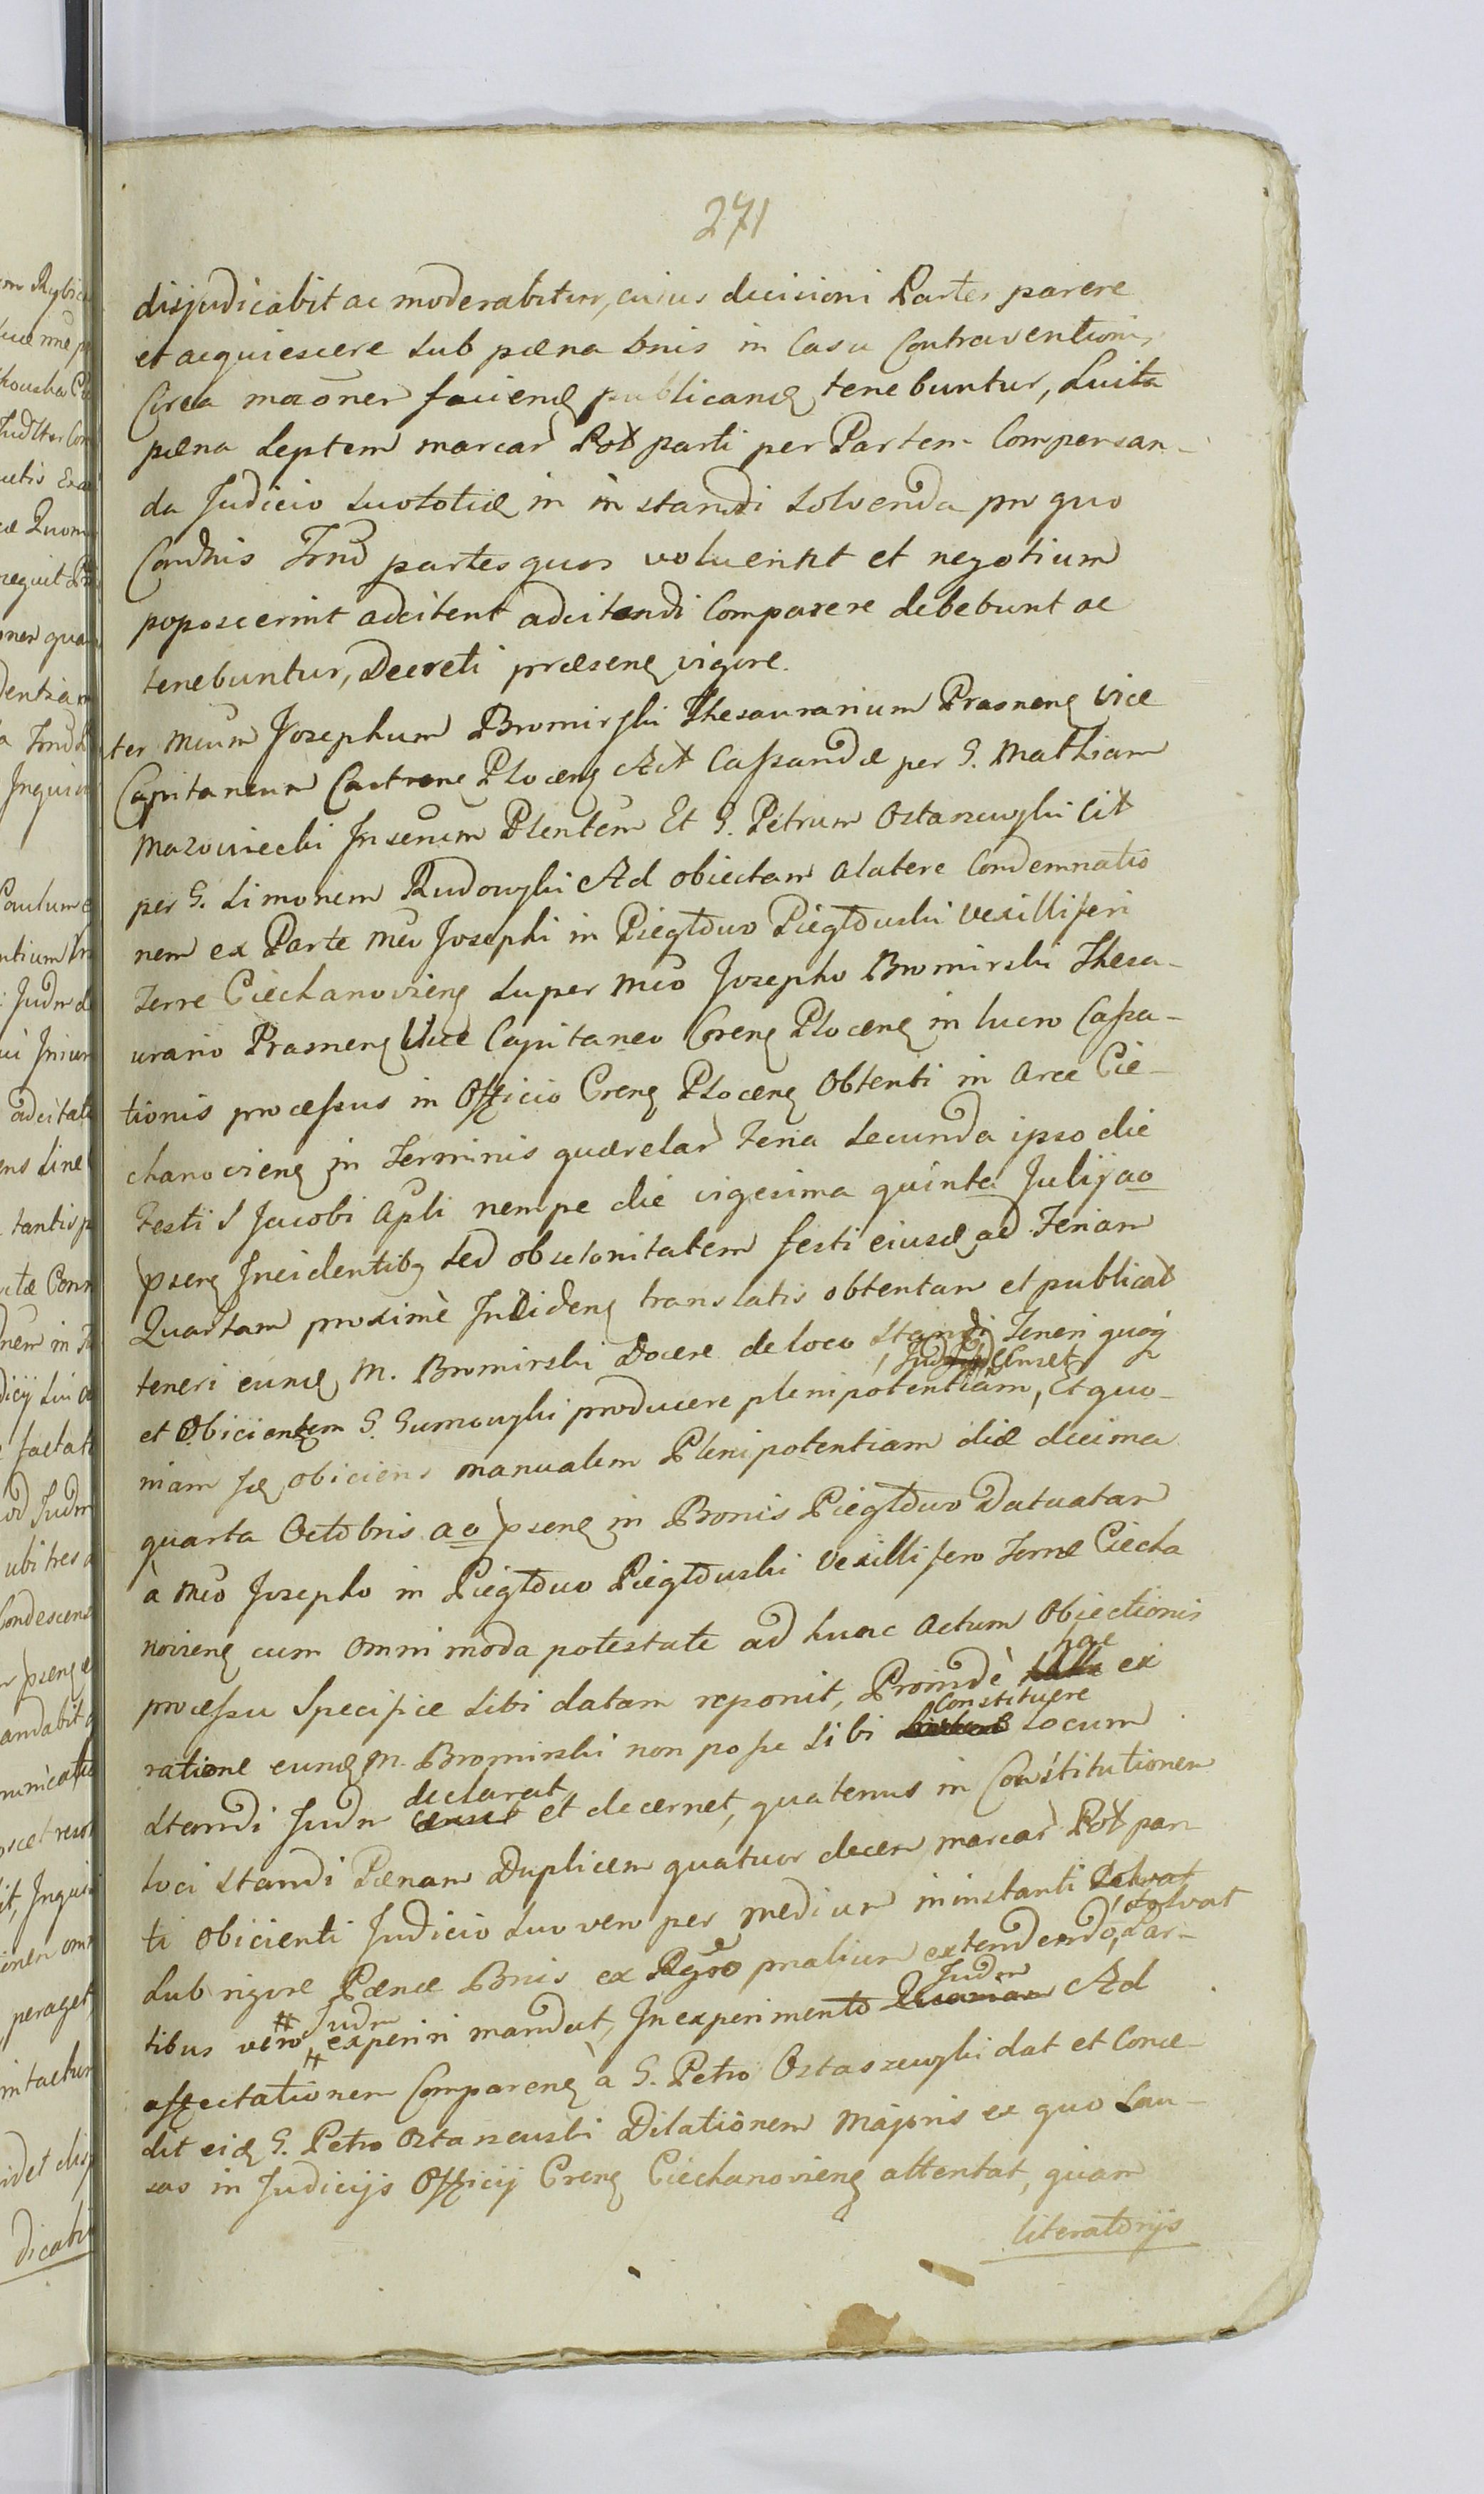 271
disjudicabit ac moderabitur, cuius decisioni Partes parere
et acquiescere sub pœna bnis in Casu Contraventionis
Circa maõner faciend publicand tenebuntur, Luita
pœna septem marcar Pol parti per Partem Compensan-
da Judicio suo totid in instandi solvenda pro quo
Condnis Trnõ partes quos voluerint et negotium
poposcerint adcitent adcitandi Comparere debebunt ac
tenebuntur, Decreti præsenꝫ vigore.
ter Mcum Josephum Bromirski Thesaurarium Prasnenꝫ Vice
Capitaneum Castrenꝫ Plocenꝫ Act Cassandæ per G. Mathiam
Mazowiecki Insenum Plentem Et G. Petrum Ostaszewski Cit
per G. Simonem Rudowski Ad obiectam a latere Condemnatio
nem ex Parte Mci Josephi in Pięgłowo Pięgłowski Vexilliferi
Terre Ciechanoviens super Mco Josepho Bromirski Thesa-
urario Prasnenꝫ Vice Capitaneo Crenꝫ Plocenꝫ in lucro Cassa-
tionis processus in Officio Crenꝫ Plocenꝫ Obtenti in Arce Cie-
chanovienꝫ in Terminis quærelar Feria secunda ipso die
Festi S Jacobi Apli nempe die vigesima quinta Julij ao
psenꝫ Incidentibꝫ sed ob solonitatem festi eiusd ad Feriam
Quartam proximè Incidenꝫ translatis obtentam et publicat
teneri eund M. Bromirski Docere de loco standi Teneri quoq
, Judm Censet
et Obicientem G. Gumowski producere plenipotentiam, Et quo-
niam id obiciens manualem Plenipotentiam die decima
quarta Octobris ao psenꝫ in Bonis Pięgłowo Datuatam
à Mco Josepho in Pięgłowo Pięgłowski Vexillifero Terræ Ciecha
novienꝫ cum omnimoda potestate ad hunc Actum Objectionis
hac
processu Specifice sibi datam reponit, Proindè ex
Constituere
ratione eund M. Bromirski non posse sibi Locum
declarat
standi Judm censet et decernet, quatenus in Constitutionem
loci standi Pœnam Duplicem quatuor decem marcar Pol par
ti Obicienti Judicio suo vero per medium in instanti Solvat
solvat
sub rigore Pœnæ Bnis ex Rgõo pnalium extendendo, Par-
Judm Judm
tibus vero experiri mandat, In experimento Quoniam Ad
affectationem Comparenꝫ à G. Petro Ostaszewski dat et Conce-
dit eid G. Petro Ostaszewski Dilationem Majoris ex quo Cau-
sas in Judicijs Officij Crenꝫ Ciechanovienꝫ attentat, quam
literatorijs